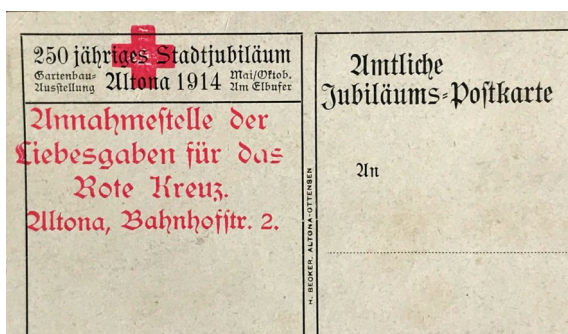 250 jähriges Stadtjubiläum
Gartenbau-
Ausstellung
Altona 1914
Mai/Oktob.
Am Elbufer
Annahmestelle der
Liebesgaben für das
Rote Kreuz.
Altona, Bahnhofstr. 2.
H. BECKER, ALTONA-OTTENSEN
Amtliche
Jubiläums-Postkarte
An